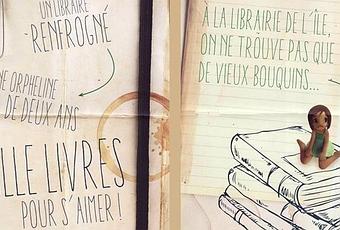 UN LIBRAIRE
RENFROGNÉ
NE ORPHELINE
DE DEUX ANS
LLE LIVRES
POUR S'AIMER !
À LA LIBRAIRIE DE L'ÎLE,
ON NE TROUVE PAS QUE
DE VIEUX BOUQUINS...